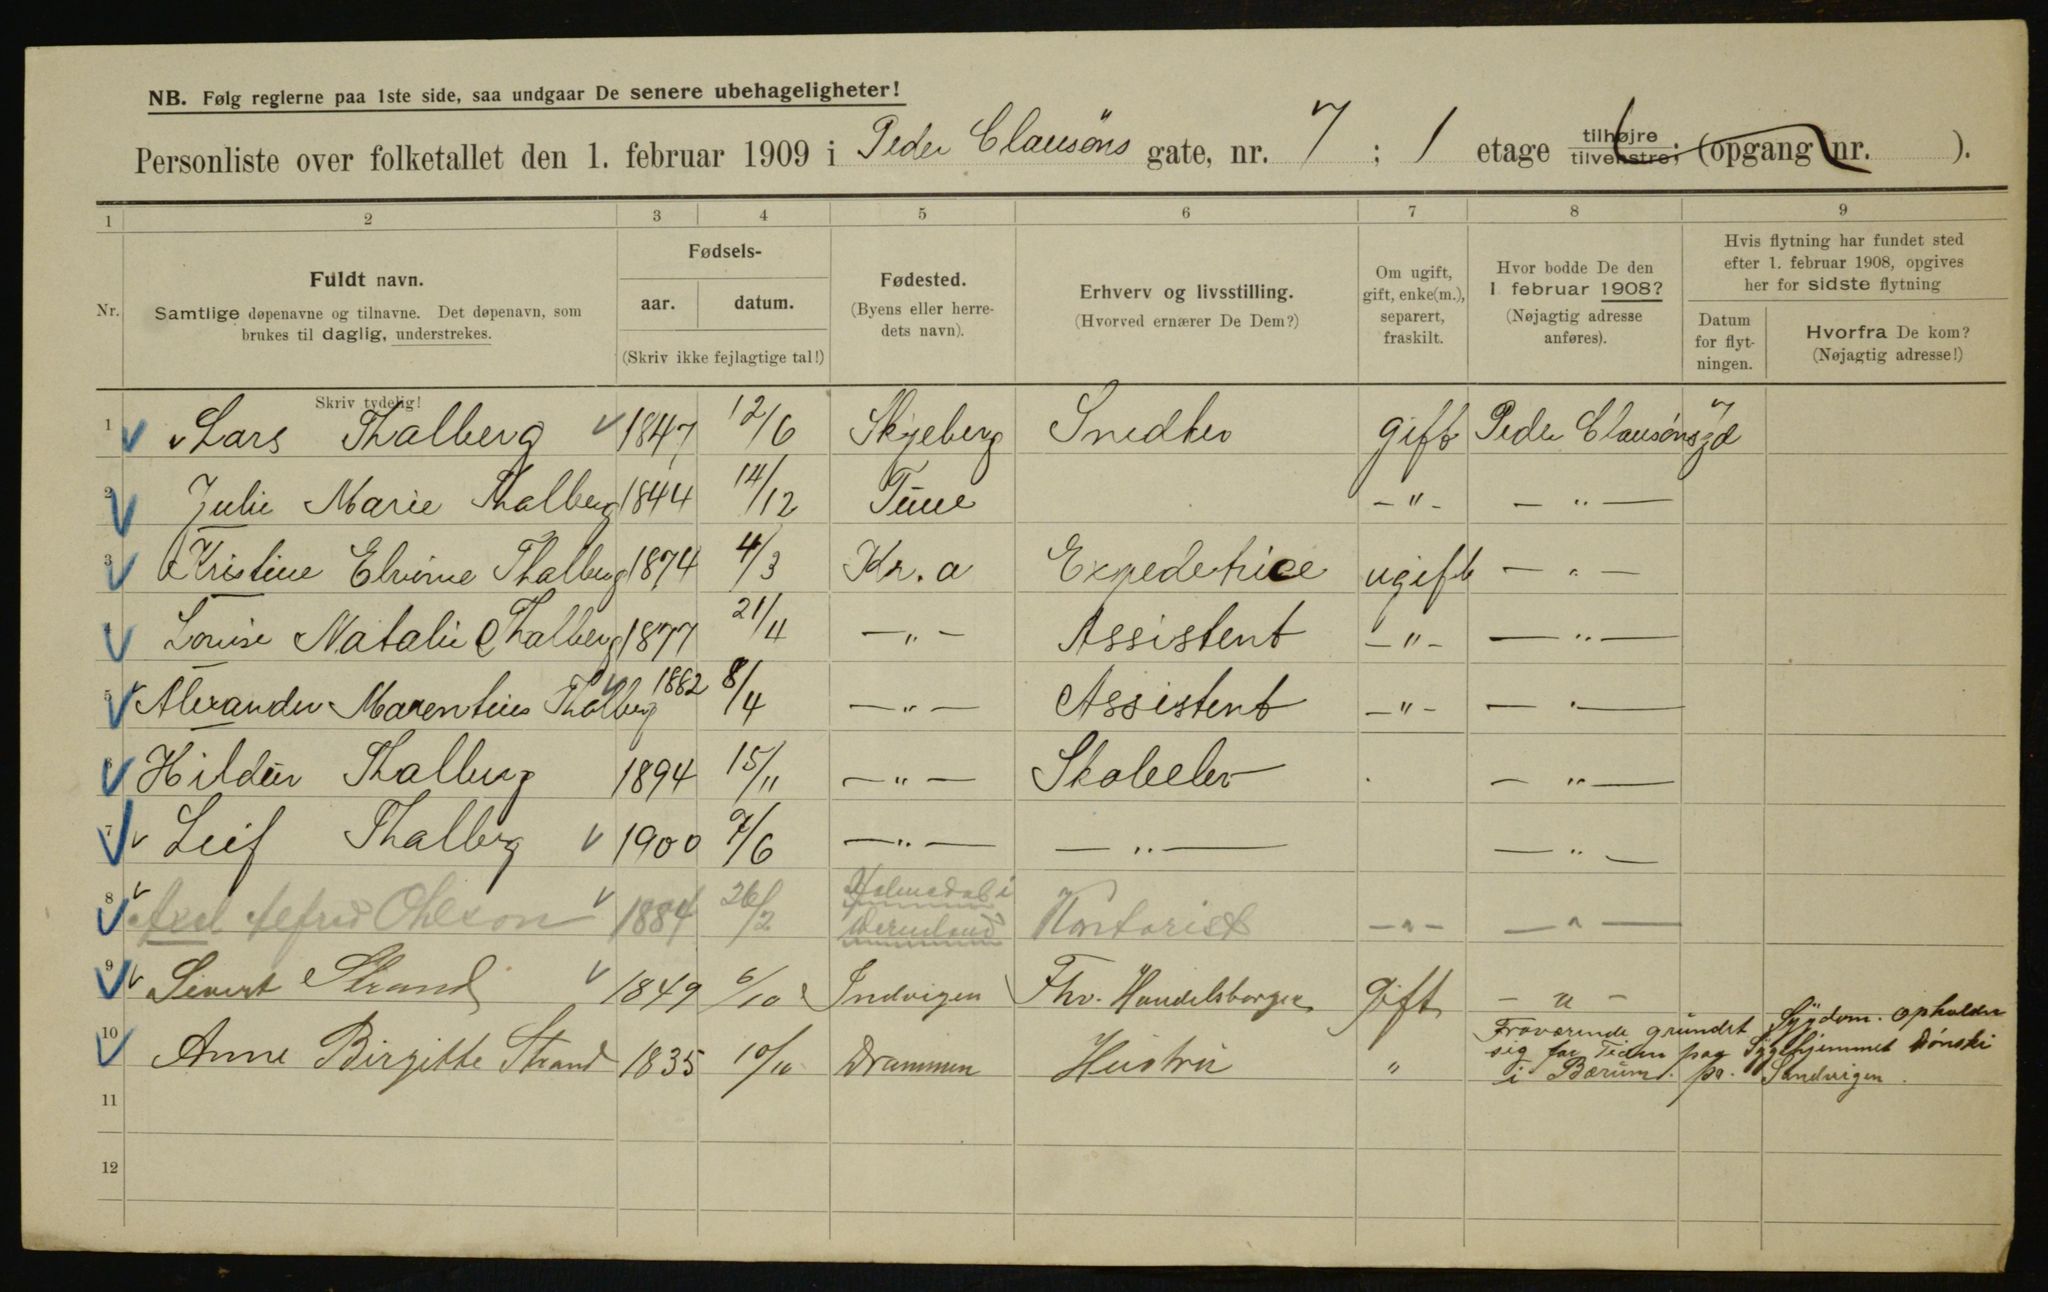 NB. Følg reglerne paa 1ste side, saa undgaar De senere ubehageligheter!
Personliste over folketallet den 1. februar 1909 i Peder Clausøns gate, nr. 7 ; 1 etage tilhøjre tilvenstre; (opgang nr. ).
1 2 3 4 5 6 7 8 9
Nr. Fuldt navn. Samtlige døpenavne og tilnavne. Det døpenavn, som brukes til daglig, understrekes.
Fødsels- aar. datum. (Skriv ikke fejlagtige tal!)
Fødested. (Byens eller herredets navn).
Erhverv og livsstilling. (Hvorved ernærer De Dem?)
Om ugift, gift, enke(m.), separert, fraskilt.
Hvor bodde De den 1 februar 1908? (Nøjagtig adresse anføres).
Hvis flytning har fundet sted efter 1. februar 1908, opgives her for sidste flytning
Datum for flytningen. Hvorfra De kom? (Nøjagtig adresse!)
Skriv tydelig!
1 Lars Thalberg 1847 12/6 Skjeberg Snedker gift Peder Clausøns gd 7
2 Julie Marie Thalberg 1844 14/12 Tune — " — — " —
3 Kristine Elvine Thalberg 1874 4/3 Kr.a Expeditrice ugift — " —
4 Louise Natalie Thalberg 1877 21/4 — " — Assistent — " — — " —
5 Alexander Marentius Thalberg 1882 8/4 — " — Assistent — " — — " —
6 Hildur Thalberg 1894 15/11 — " — Skoleelev — " —
7 Leif Thalberg 1900 7/6 — " — — " — — " —
8 Axel Alfred Ohlson 1884 26/2 Holmedal i Vermland Kontorist — " — — " —
9 Sivert Strand 1849 6/10 Indvigen Fhv. Handelsborger gift — " —
10 Anne Birgitte Strand 1835 10/10 Drammen Hustru " Fraværende grundet Sygdom. opholder
sig for Tiden paa Sygehjemmet Dønski
i Bærum. pr. Sandvigen.
11
12